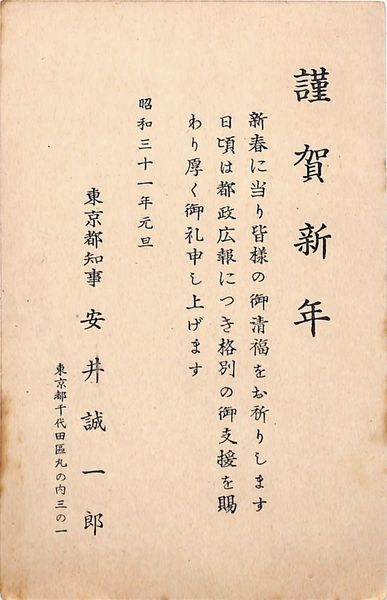 謹賀新年
新春に当り皆様の御清福をお祈りします
日頃は都政広報につき格別の御支援を賜
わり厚く御礼申し上げます
昭和三十一年元旦
東京都知事 安井誠一郎
東京都千代田區丸の内三の一